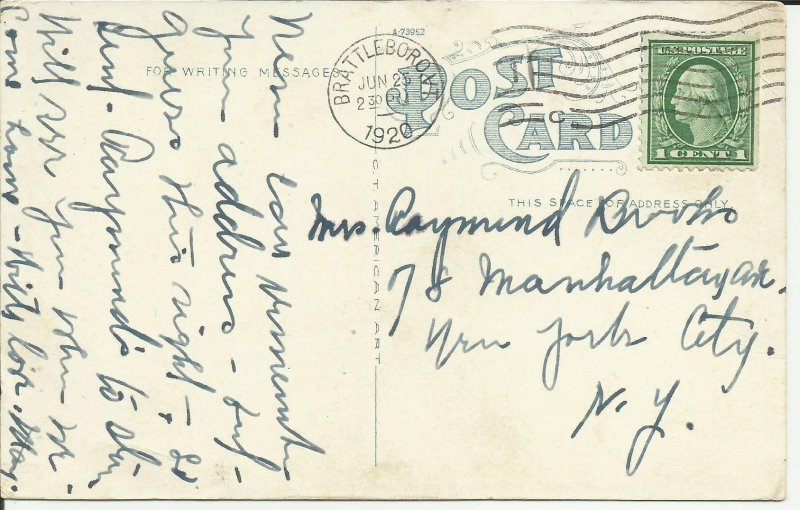 A-73952
FOR WRITING MESSAGES
POST
CARD
BRATTLEBORO, VT.
JUN 25
2 30 P
1920
U.S. POSTAGE
1 CENT 1
THIS SPACE FOR ADDRESS ONLY.
CT. AMERICAN ART
Mrs. Raymond Brooks
78 Manhattan Ave.
New York City.
N. Y.
Never can remember
your address - but
guess this right - &
sent Raymond's to
Will see you when we
come home - With love, May.